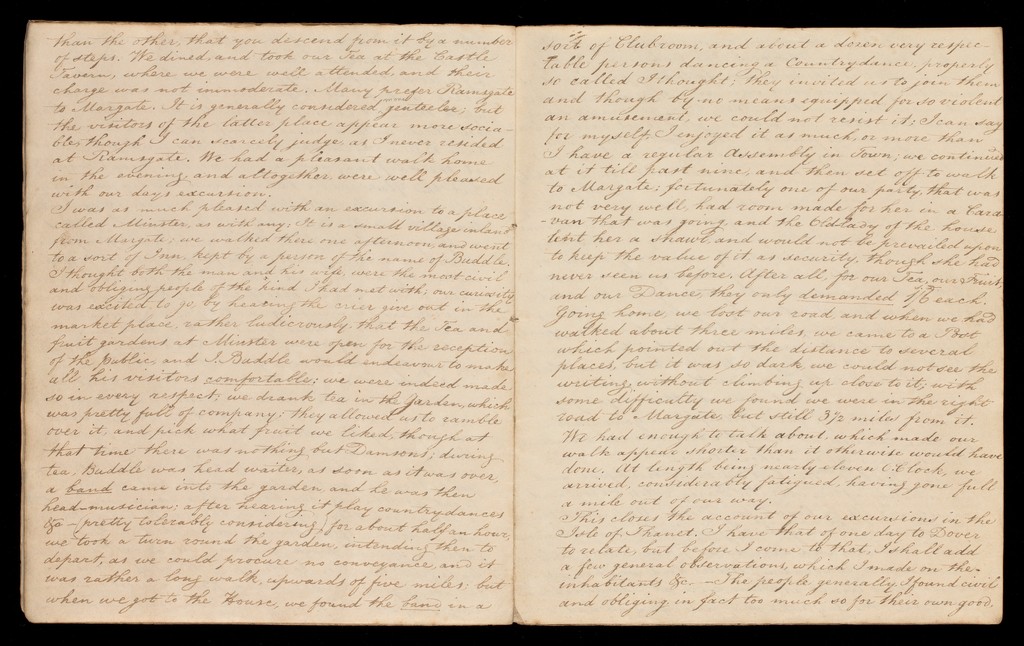 than the other, that you descend from it by a number
of steps. We dined, and took our Tea at the Castle
Tavern, where we were well attended, and their
charge was not immoderate. Many prefer Ramsgate
to Margate. It is generally considered genteeler; but
the visitors of the latter place appear more socia-
ble, though I can scarcely judge, as I never resided
at Ramsgate. We had a pleasant walk home
in the evening, and altogether were well pleased
with our day's excursion.
I was as much pleased with an excursion to a place
called Minster, as with any; It is a small village inland
from Margate; we walked there one afternoon, and went
to a sort of Inn, kept by a person of the name of Buddle,
I thought both the man and his wife, were the most civil
and obliging people of the kind I had met with; our curiosity
was excited to go, by hearing the crier give out in the
market place, rather ludicrously, that the Tea and
fruit gardens at Minster were open for the reception
of the public, and J. Buddle would indeavour to make
all his visitors comfortable; we were indeed made
so in every respect; we drank tea in the Garden, which
was pretty full of company; they allowed us to ramble
over it, and pick what fruit we liked, though at
that time there was nothing but Damsons; during
tea, Buddle was head waiter, as soon as it was over,
a band came into the garden, and he was then
head-musician; after hearing it play country dances
&c - (pretty tolerably considering) for about half an hour,
we took a turn round the garden, intending then to
depart, as we could procure no conveyance, and it
was rather a long walk, upwards of five miles; but
when we got to the House, we found the band in a
sort of Clubroom, and about a dozen very respec-
table persons dancing a Countrydance, properly
so called I thought; they invited us to join them
and though by no means equipped for so violent
an amusement, we could not resist it; I can say
for myself, I enjoyed it as much, or more than
I have a regular Assembly in Town; we continued
at it till past nine, and then set off to walk
to Margate; fortunately one of our party, that was
not very well, had room made for her in a Cara
-van that was going, and the Old lady of the house
lent her a shawl, and would not be prevailed upon
to keep the value of it as security, though she had
never seen us before. After all, for our Tea, our Fruit,
and our Dance, they only demanded 1/6 each.
Going home, we lost our road and when we had
walked about three miles, we came to a Post
which pointed out the distance to several
places, but it was so dark, we could not see the
writing, without climbing up close to it; with
some difficulty we found we were in the right
road to Margate, but still 3½ miles from it.
We had enough to talk about, which made our
walk appear shorter than it otherwise would have
done. At length being nearly eleven O'Clock, we
arrived, considerably fatigued, having gone full
a mile out of our way.
This closes the account of our excursions in the
Isle of Thanet. I have that of one day to Dover
to relate, but before I come to that, I shall add
a few general observations, which I made on the
inhabitants &c. - The people generally I found civil
and obliging, in fact too much so for their own good,